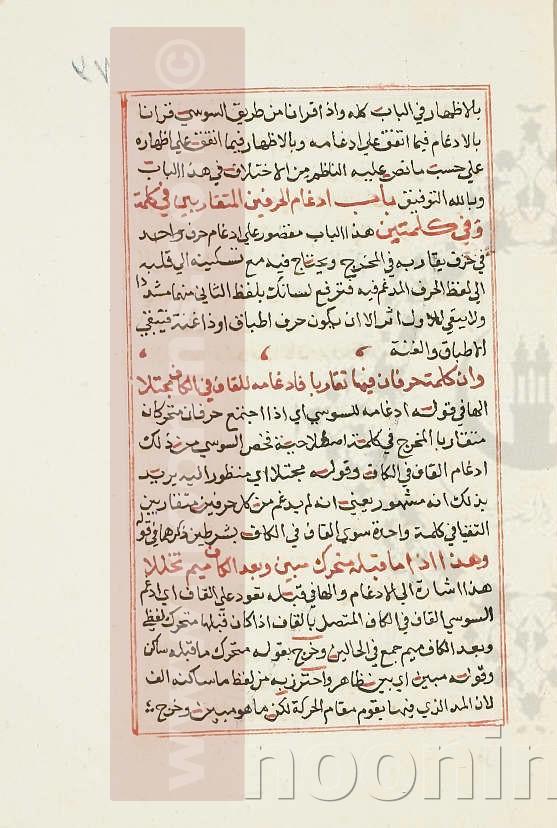 بالاظهار في الباب كله واذا قرانا من طريق السوسي قرانا
بالادغام فيما اتفق على ادغامه وبالاظهار فيما اتفق على اظهاره
على حسب ما نص عليه الناظم من الاختلاف في هذا الباب
وبالله التوفيق باب ادغام الحرفين المتقاربين في كلمة
وفي كلمتين هذا الباب مقصور على ادغام حرف واحد
في حرف يقاربه في المخرج ويحتاج فيه مع تسكينه الى قلبه
الى لفظ الحرف المدغم فيه فترفع لسانك بلفظ الثاني منهما مشددا
ولا يبقى للاول اثر الا ان يكون حرف اطباق او ذا غنة فيبقي
الاطباق والغنة
وان كلمة حرفان فيها تقاربا فادغامه للقاف في الكاف مجتلا
الها في قوله ادغامه للسوسي اي اذا اجتمع حرفان متحركان
متقاربا المخرج في كلمة اصطلاحية فخص السوسي من ذلك
ادغام القاف في الكاف وقوله مجتلا اي منظور اليه يريد
بذلك انه مشهور يعني انه لم يدغم من كل حرفين متقاربين
التقيا في كلمة واحدة سوي القاف في الكاف بشرطين ذكرهما في قوله
وهذا اذا ما قبله متحرك مبين وبعد الكاف ميم تخللا
هذا اشارة الى الادغام والها في قبله تعود على القاف اي ادغم
السوسي القاف في الكاف المتصل بالقاف اذا كان قبلها متحرك لفظي
وبعد الكاف ميم جمع في الحالين وخرج بقوله متحرك ما قبله ساكن
وقوله مبين اي بين ظاهر واحترز به من لفظ ما ساكنه الف
لان المد الذي فيها يقوم مقام الحركة لكن ما هو مبين وخرج
www.noonin
noonin